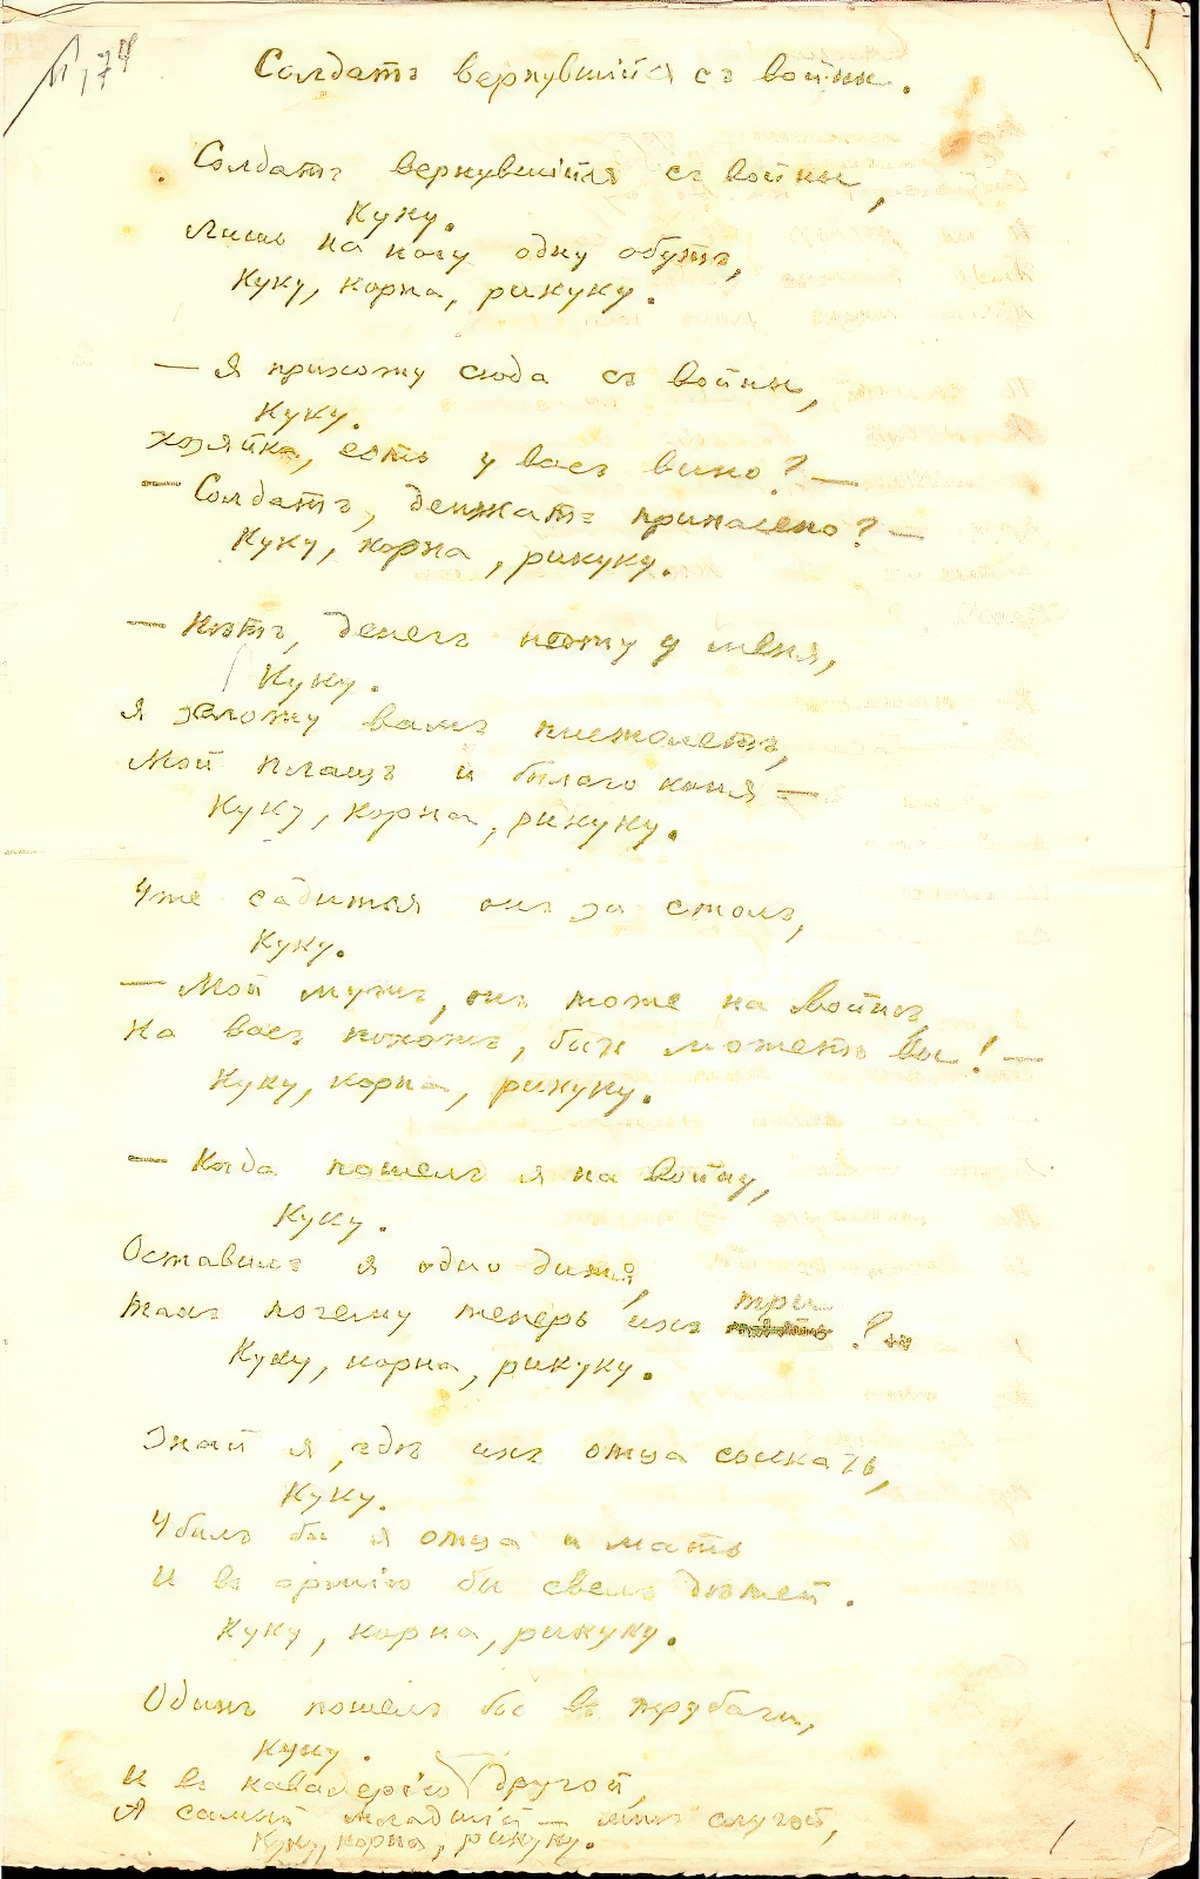 Солдатъ вернувшійся съ войны.
Солдатъ вернувшійся съ войны,
Куку.
Лишь на ногу одну обутъ,
Куку, корна, рикуку.
— Я прихожу сюда съ войны,
Куку.
Хозяйка, есть у васъ вино? —
— Солдатъ, деньжатъ припасено? —
Куку, корна, рикуку.
— Нѣтъ, денегъ нѣту у меня,
Куку.
Я заложу вамъ пистолетъ,
Мой плащъ и бѣлаго коня —
Куку, корна, рикуку.
Уже садится онъ за столъ,
Куку.
— Мой мужъ, онъ тоже на войнѣ,
На васъ похожъ, быть можетъ вы! —
Куку, корна, рикуку.
— Когда пошелъ я на войну,
Куку.
Оставилъ я одно дитя,
три
Такъ почему теперь ихъ ?
Куку, корна, рикуку.
Знай я, гдѣ ихъ отца сыскать,
Куку.
Убилъ бы я отца и мать
И въ армію бы свелъ дѣтей.
Куку, корна, рикуку.
Одинъ пошелъ бы въ трубачи,
Куку.
И въ кавалерію другой,
А самый младшій — слугой,
Куку, корна, рикуку.